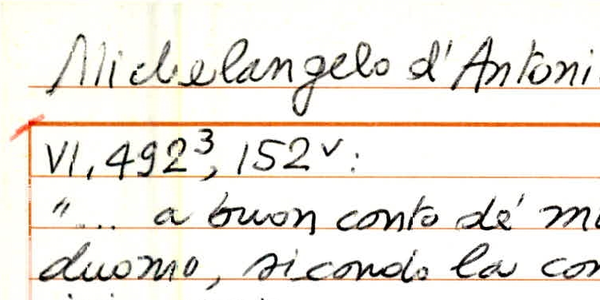 Michelangelo d'Antoni
VI, 492³, 152ᵛ:
"... a buon conto dé
duomo, sicondo la con